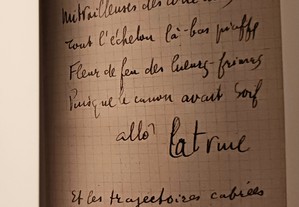 mitrailleuses des
Tout l'échelon là-bas piaffe
Fleur de feu des lueurs-frimas
Puisque le canon avait soif
allô Latrine
Et les trajectoires cabrées